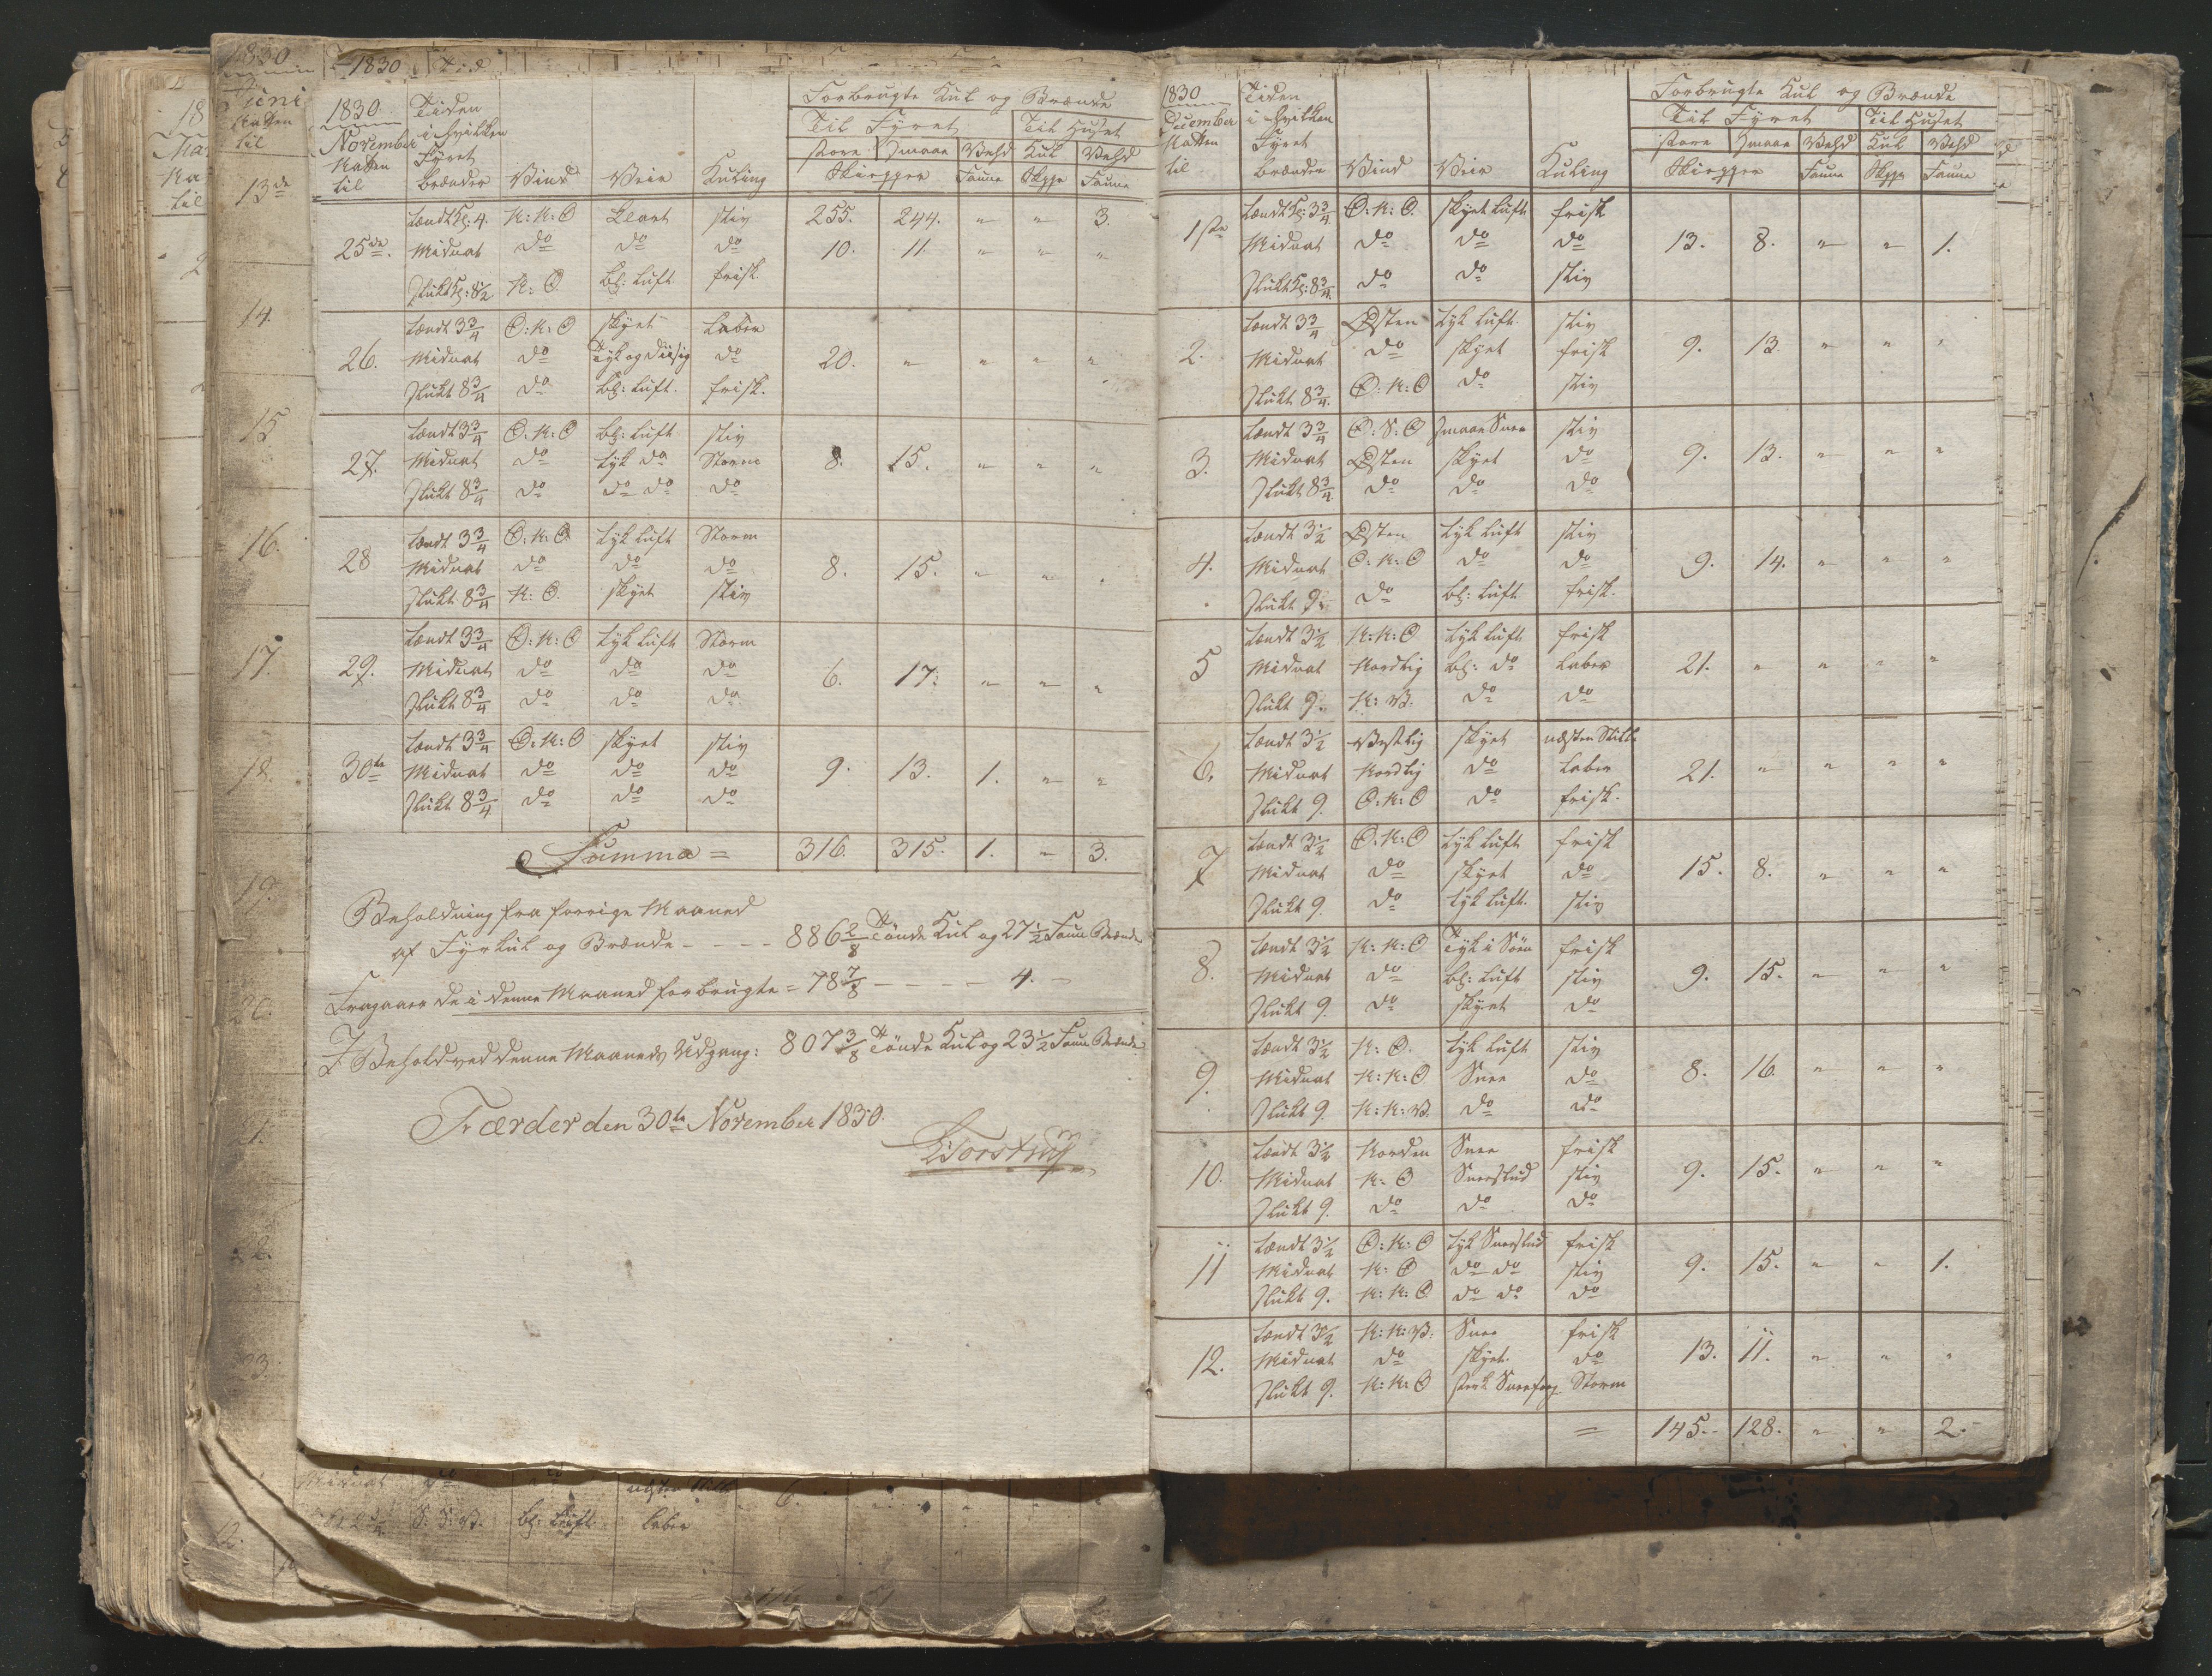 1830
November
Natten
til
Tiden
i hvilken
Fyret
brænder
Vind
Veir
Kuling
Forbrugte Kul og Brænde
Til Fyret
Til Huset
store
smaae
Vehd
Kul
Vehd
Skiepper
Faune
Skpr
Faune
25de.
tændt Kl: 4. N:N:O Klart stiv 255. 244. " " 3.
Midnat do do do 10. 11. " " "
slukt Kl: 8½ N:O. bl: Luft frisk
26.
tændt 3¾ O:N:O skyet Laber
Midnat do Tyk og diisig do 20. " " " "
slukt 8¾ do bl: Luft. frisk.
27.
tændt 3¾ O:N:O bl: Luft stiv
Midnat do tyk do Storm 8. 15. " " "
slukt 8¾ do do do do
28
tændt 3¾ O:N:O tyk Luft Storm
Midnat do do do 8. 15. " " "
slukt 8¾ N:O. skyet stiv
29.
tændt 3¾ O:N:O tyk Luft Storm
Midnat do do do 6. 17. " " "
slukt 8¾ do do do
30te
tændt 3¾ O:N:O skyet stiv
Midnat do do do 9. 13. 1. " "
slukt 8¾ do do do
Summa = 316. 315. 1. " 3.
Beholdning fra forrige Maaned
af Fyrkul og Brænde - - - - 886 2/8 Tönde Kul og 27½ Faun Brænde
Fragaaer de i denne Maaned forbrugte = 78 7/8 - - - - - 4. -
I Behold ved denne Maaneds Udgang: 807 3/8 Tönde Kul og 23½ Faun Brænde
Færder den 30te November 1830.
1830
December
Natten
til
Tiden
i hvilken
Fyret
brænder
Vind
Veir
Kuling
Forbrugte Kul og Brænde
Til Fyret
Til Huset
store
smaae
Vehd
Kul
Vehd
Skiepper
Faune
Skpr
Faune
1ste
tændt Kl: 3¾ O:N:O. skyet Luft frisk
Midnat do do do 13. 8. " " 1.
slukt Kl: 8¾. do do stiv
2.
tændt 3¾ Østen tyk Luft. stiv
Midnat do skyet frisk 9. 13. " " "
slukt 8¾. O:N:O do stiv
3.
tændt 3¾ O:S:O smaae Snee stiv
Midnat Østen skyet do 9. 13. " " "
slukt 8¾. do do do
4.
tændt 3½ Østen tyk Luft stiv
Midnat O:N:O do do 9. 14. " " "
slukt 9. do bl: Luft frisk.
5
tændt 3½ N:N:O tyk Luft frisk
Midnat Nordlig bl: do Laber 21. " " " "
slukt 9. N:V. do do
6.
tændt 3½ Vestlig skyet næsten Stille
Midnat Nordlig do Laber 21. " " " "
slukt 9. O:N:O do frisk.
7
tændt 3½ O:N:O tyk Luft frisk
Midnat do skyet do 15. 8. " " "
slukt 9. do tyk Luft. stiv
8.
tændt 3½ N:N:O Tyk i Söen frisk
Midnat do bl: Luft stiv 9. 15. " " "
slukt 9. do skyet do
9.
tændt 3½ N:O. tyk Luft stiv
Midnat N:N:O Snee do 8. 16. " " "
slukt 9. N:N:V. do do
10.
tændt 3½ Norden Snee frisk
Midnat N:O Sneeslud stiv 9. 15. " " "
slukt 9. do do do
11
tændt 3½ O:N:O tyk Sneeslud frisk
Midnat N:O do do stiv 9. 15. " " 1.
slukt 9. N:N:O do do do
12.
tændt 3½ N:N:V. Snee frisk
Midnat do skyet. do 13. 11. " " "
slukt 9. N:N:O stærk Sneefog Storm
= 145. 128. " " 2.
1830
Juni
Natten
til
13de
14.
15
16.
17.
18.
19.
20.
21.
22.
23.
1830 Tid
Midnat do do 6.
S:S:V. bl: Luft. laber